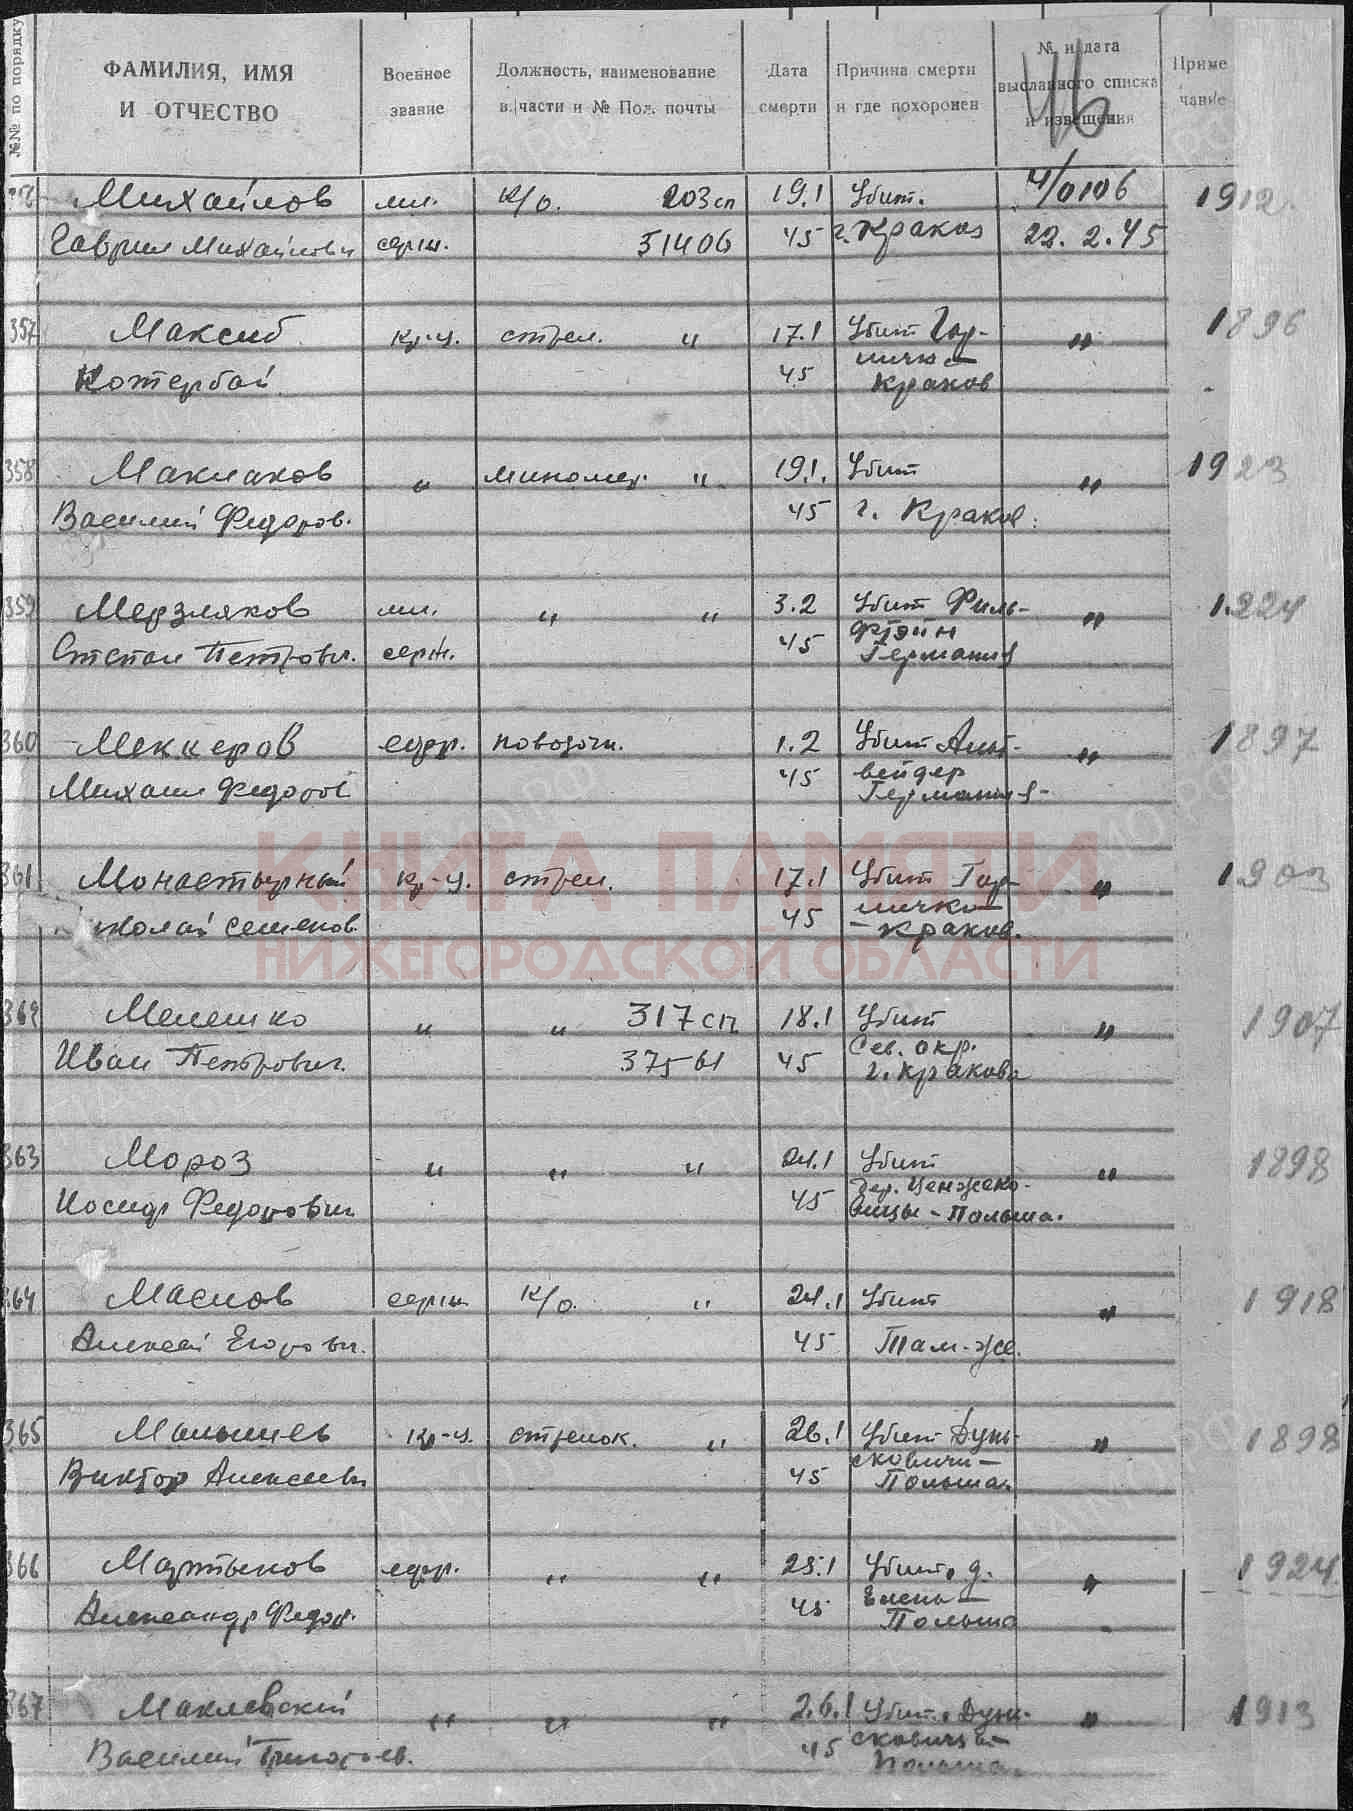 №№ по порядку
ФАМИЛИЯ, ИМЯ И ОТЧЕСТВО
Военное звание
Должность, наименование в/части и № Пол. почты
Дата смерти
Причина смерти и где похоронен
№ и дата высланного списка и извещения
Примечание
46
Михайлов мл. к/о. 203 сп 19.1 Убит. 4/0106 1912
Гаврил Михайлович серж. 51406 45 г. Краков 22.2.45
357 Максиб кр-ц. стрел. " 17.1 Убит Гор- " 1896
Котербай 45 ничко-
Краков
358 Маклаков " миномер. " 19.1. Убит " 1923
Василий Федоров. 45 г. Краков.
359 Мерзляков мл. " " 3.2 Убит Филь- " 1924
Степан Петрович. серж. 45 штэйн
Германия
360 Меккеров ефр. повозочн. 1.2 Убит Ант- " 1897
Михаил Федоров 45 вейдер
Германия-
361 Монастырный кр-ц. стрел. 17.1 Убит Гор- " 1903
Николай Семенов. 45 ничко-
-Краков.
КНИГА ПАМЯТИ
НИЖЕГОРОДСКОЙ ОБЛАСТИ
362 Мелешко " " 317 сп 18.1 Убит " 1907
Иван Петрович. 37561 45 Сев. окр.
г. Кракова
363 Мороз " " " 24.1 Убит " 1898
Иосиф Федорович 45 дер. Ценжко-
вицы-Польша.
364 Маслов серж. к/о. " 24.1 Убит " 1918
Алексей Егорович. 45 Там-же.
365 Малышев кр-ц. стрелок. " 26.1 Убит Дунь- " 1898
Виктор Алексеевич 45 сковичи-
Польша.
366 Мартынов ефр. " " 25.1 Убит. д. " 1924.
Александр Федор. 45 Елень-
Польша
367 Маклевский " " " 26.1 Убит. Дунь- " 1913
Василий Григорьев. 45 сковичи-
Польша.